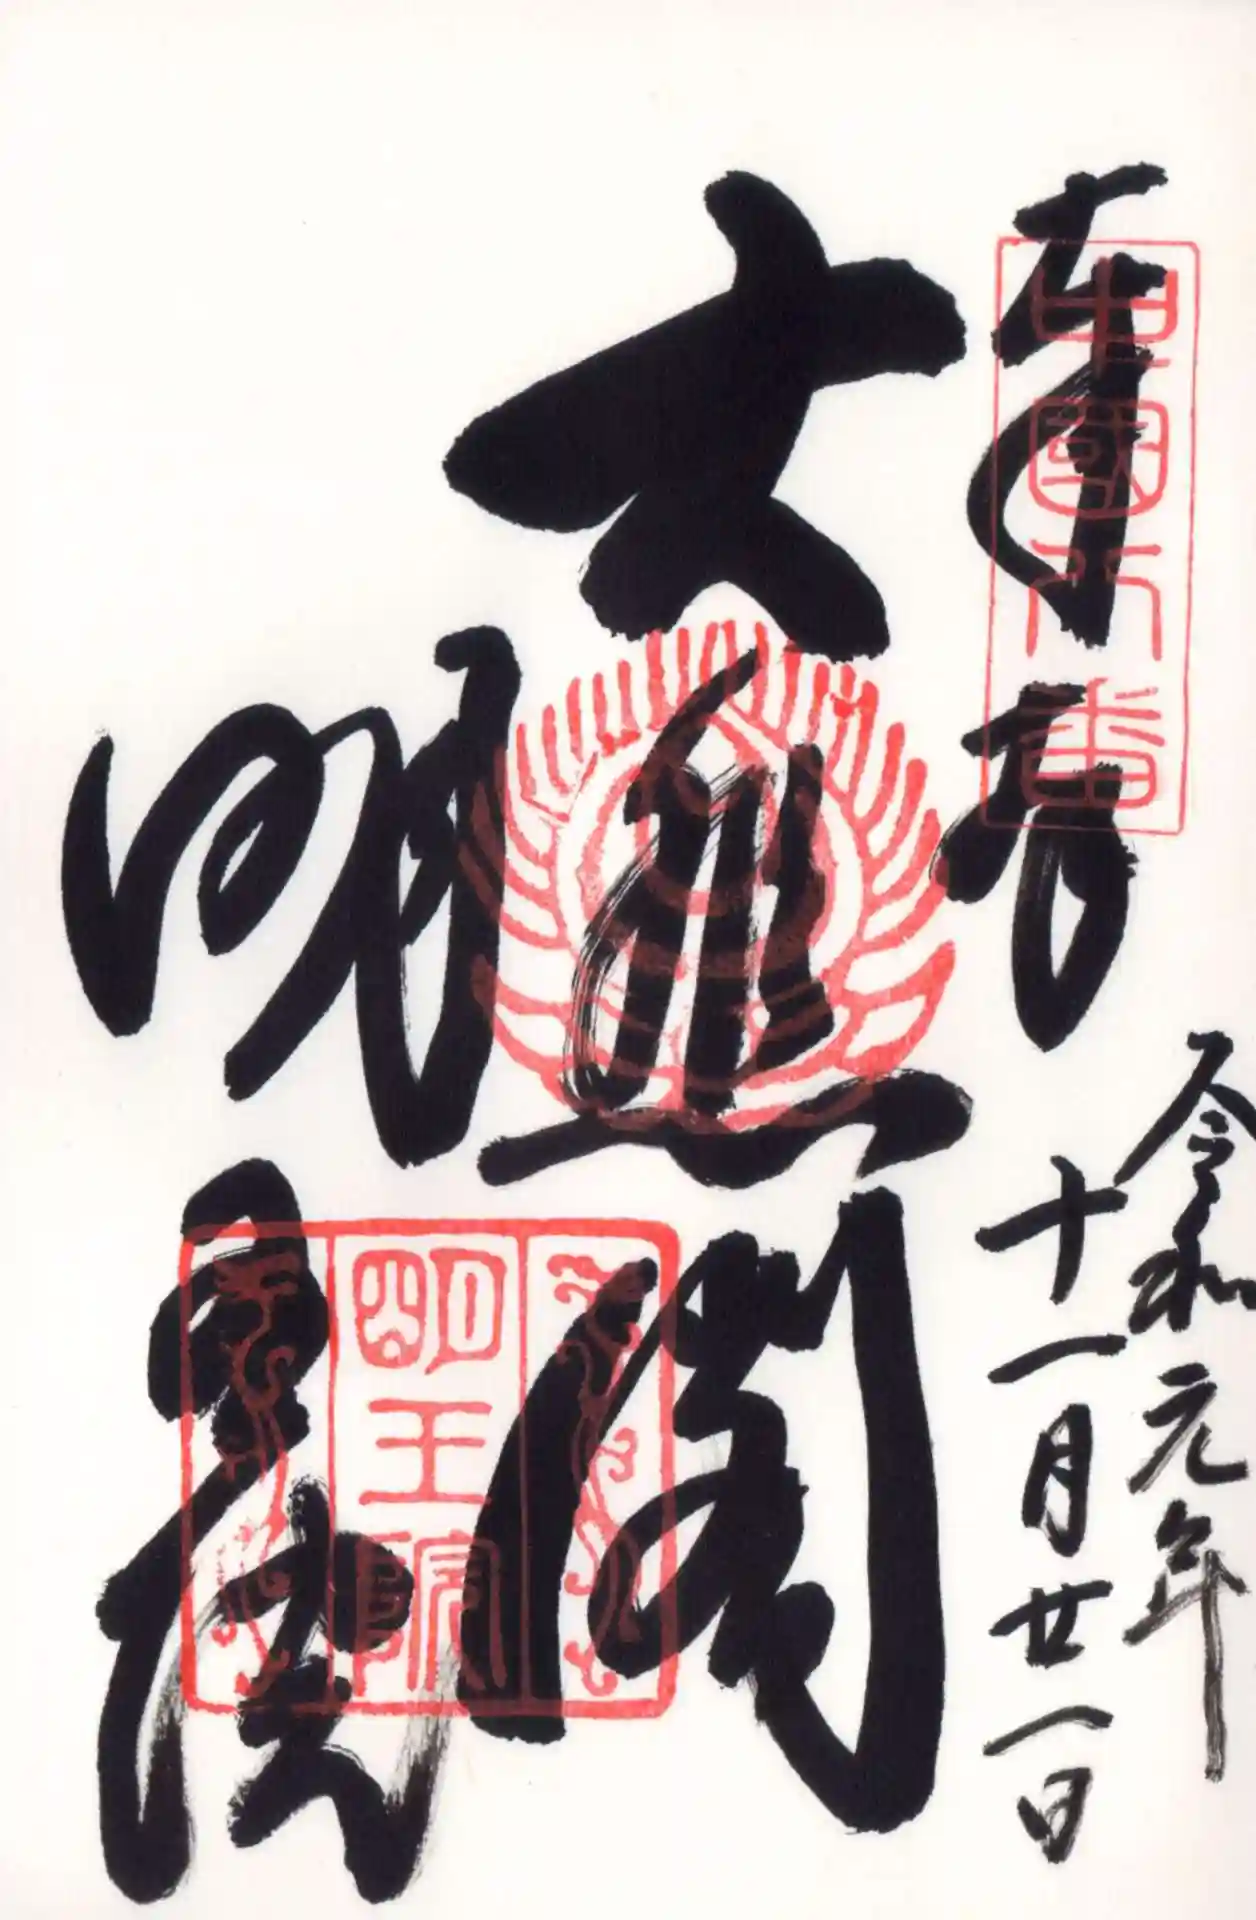 奉拝
中國八番
令和元年
十一月廿一日
大悲閣
明王院
明王院